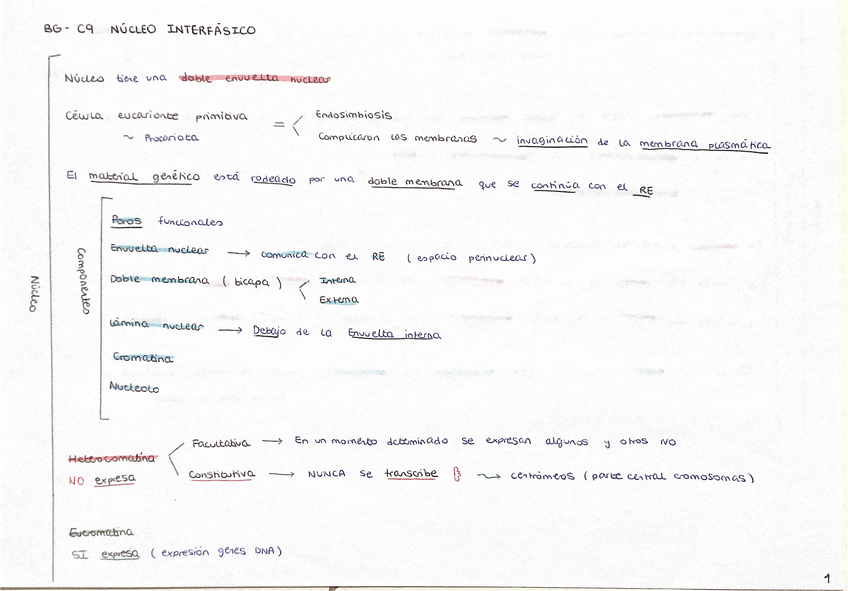 BG - C9 NÚCLEO INTERFÁSICO
Núcleo tiene una doble envuelta nuclear
Célula eucarionte primitiva = Endosimbiosis
~ Procariota Complicaron las membranas ~ invaginación de la membrana plasmática
El material genético está rodeado por una doble membrana que se continúa con el RE
Núcleo
Componentes
Poros funcionales
Envuelta nuclear → comunica con el RE (espacio perinuclear)
Doble membrana (bicapa) Interna
Externa
Lámina nuclear → Debajo de la Envuelta interna
Cromatina
Nucleolo
Facultativa → En un momento determinado se expresan algunos y otros NO
Heterocomatina
NO expresa
Constitutiva → NUNCA se transcribe ⁓> centrómeros (parte central cromosomas)
Eucromatina
SI expresa (expresión genes DNA)
1